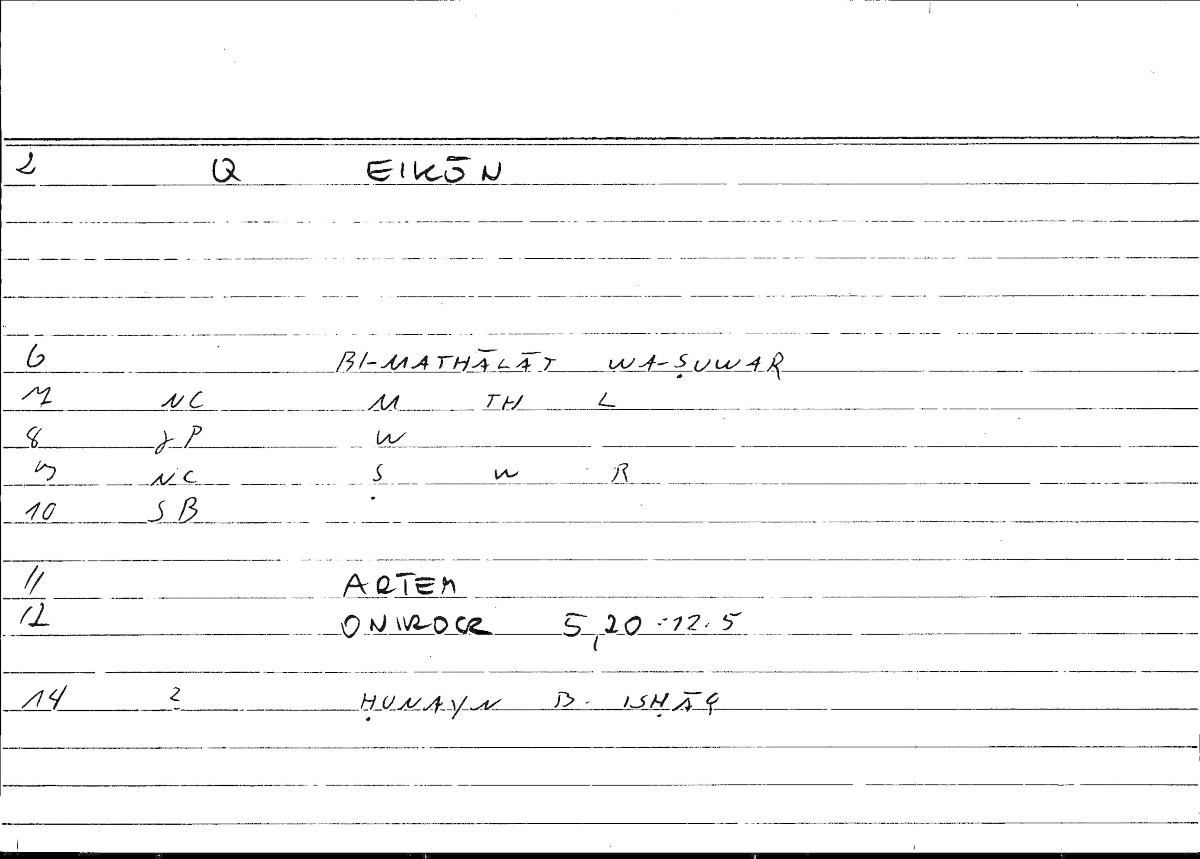 2 Q EIKŌN
6 BI-MATHĀLĀT WA-ṢUWAR
7 NC M TH L
8 γP W
9 NC Ṣ W R
10 SB
11 ARTEM
12 ONIROCR 5,20-12.5
14 2 ḤUNAYN B. ISḤĀQ